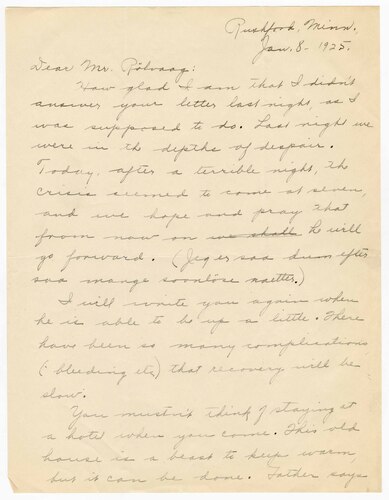 Rushford, Minn.
Jan. 8 - 1925.
Dear Mr. Rölvaag:
How glad I am that I didn't
answer your letter last night, as I
was supposed to do. Last night we
were in the depths of despair.
Today, after a terrible night, the
crisis seemed to come at seven,
and we hope and pray that
from now on we shall he will
go forward. (Jeg er saa dum efter
saa mange sovnlöse nætter.)
I will write you again when
he is able to be up a little. There
have been so many complications
(: bleeding etc) that recovery will be
slow.
You mustn't think of staying at
a hotel when you come. This old
house is a beast to keep warm
but it can be done. Father says